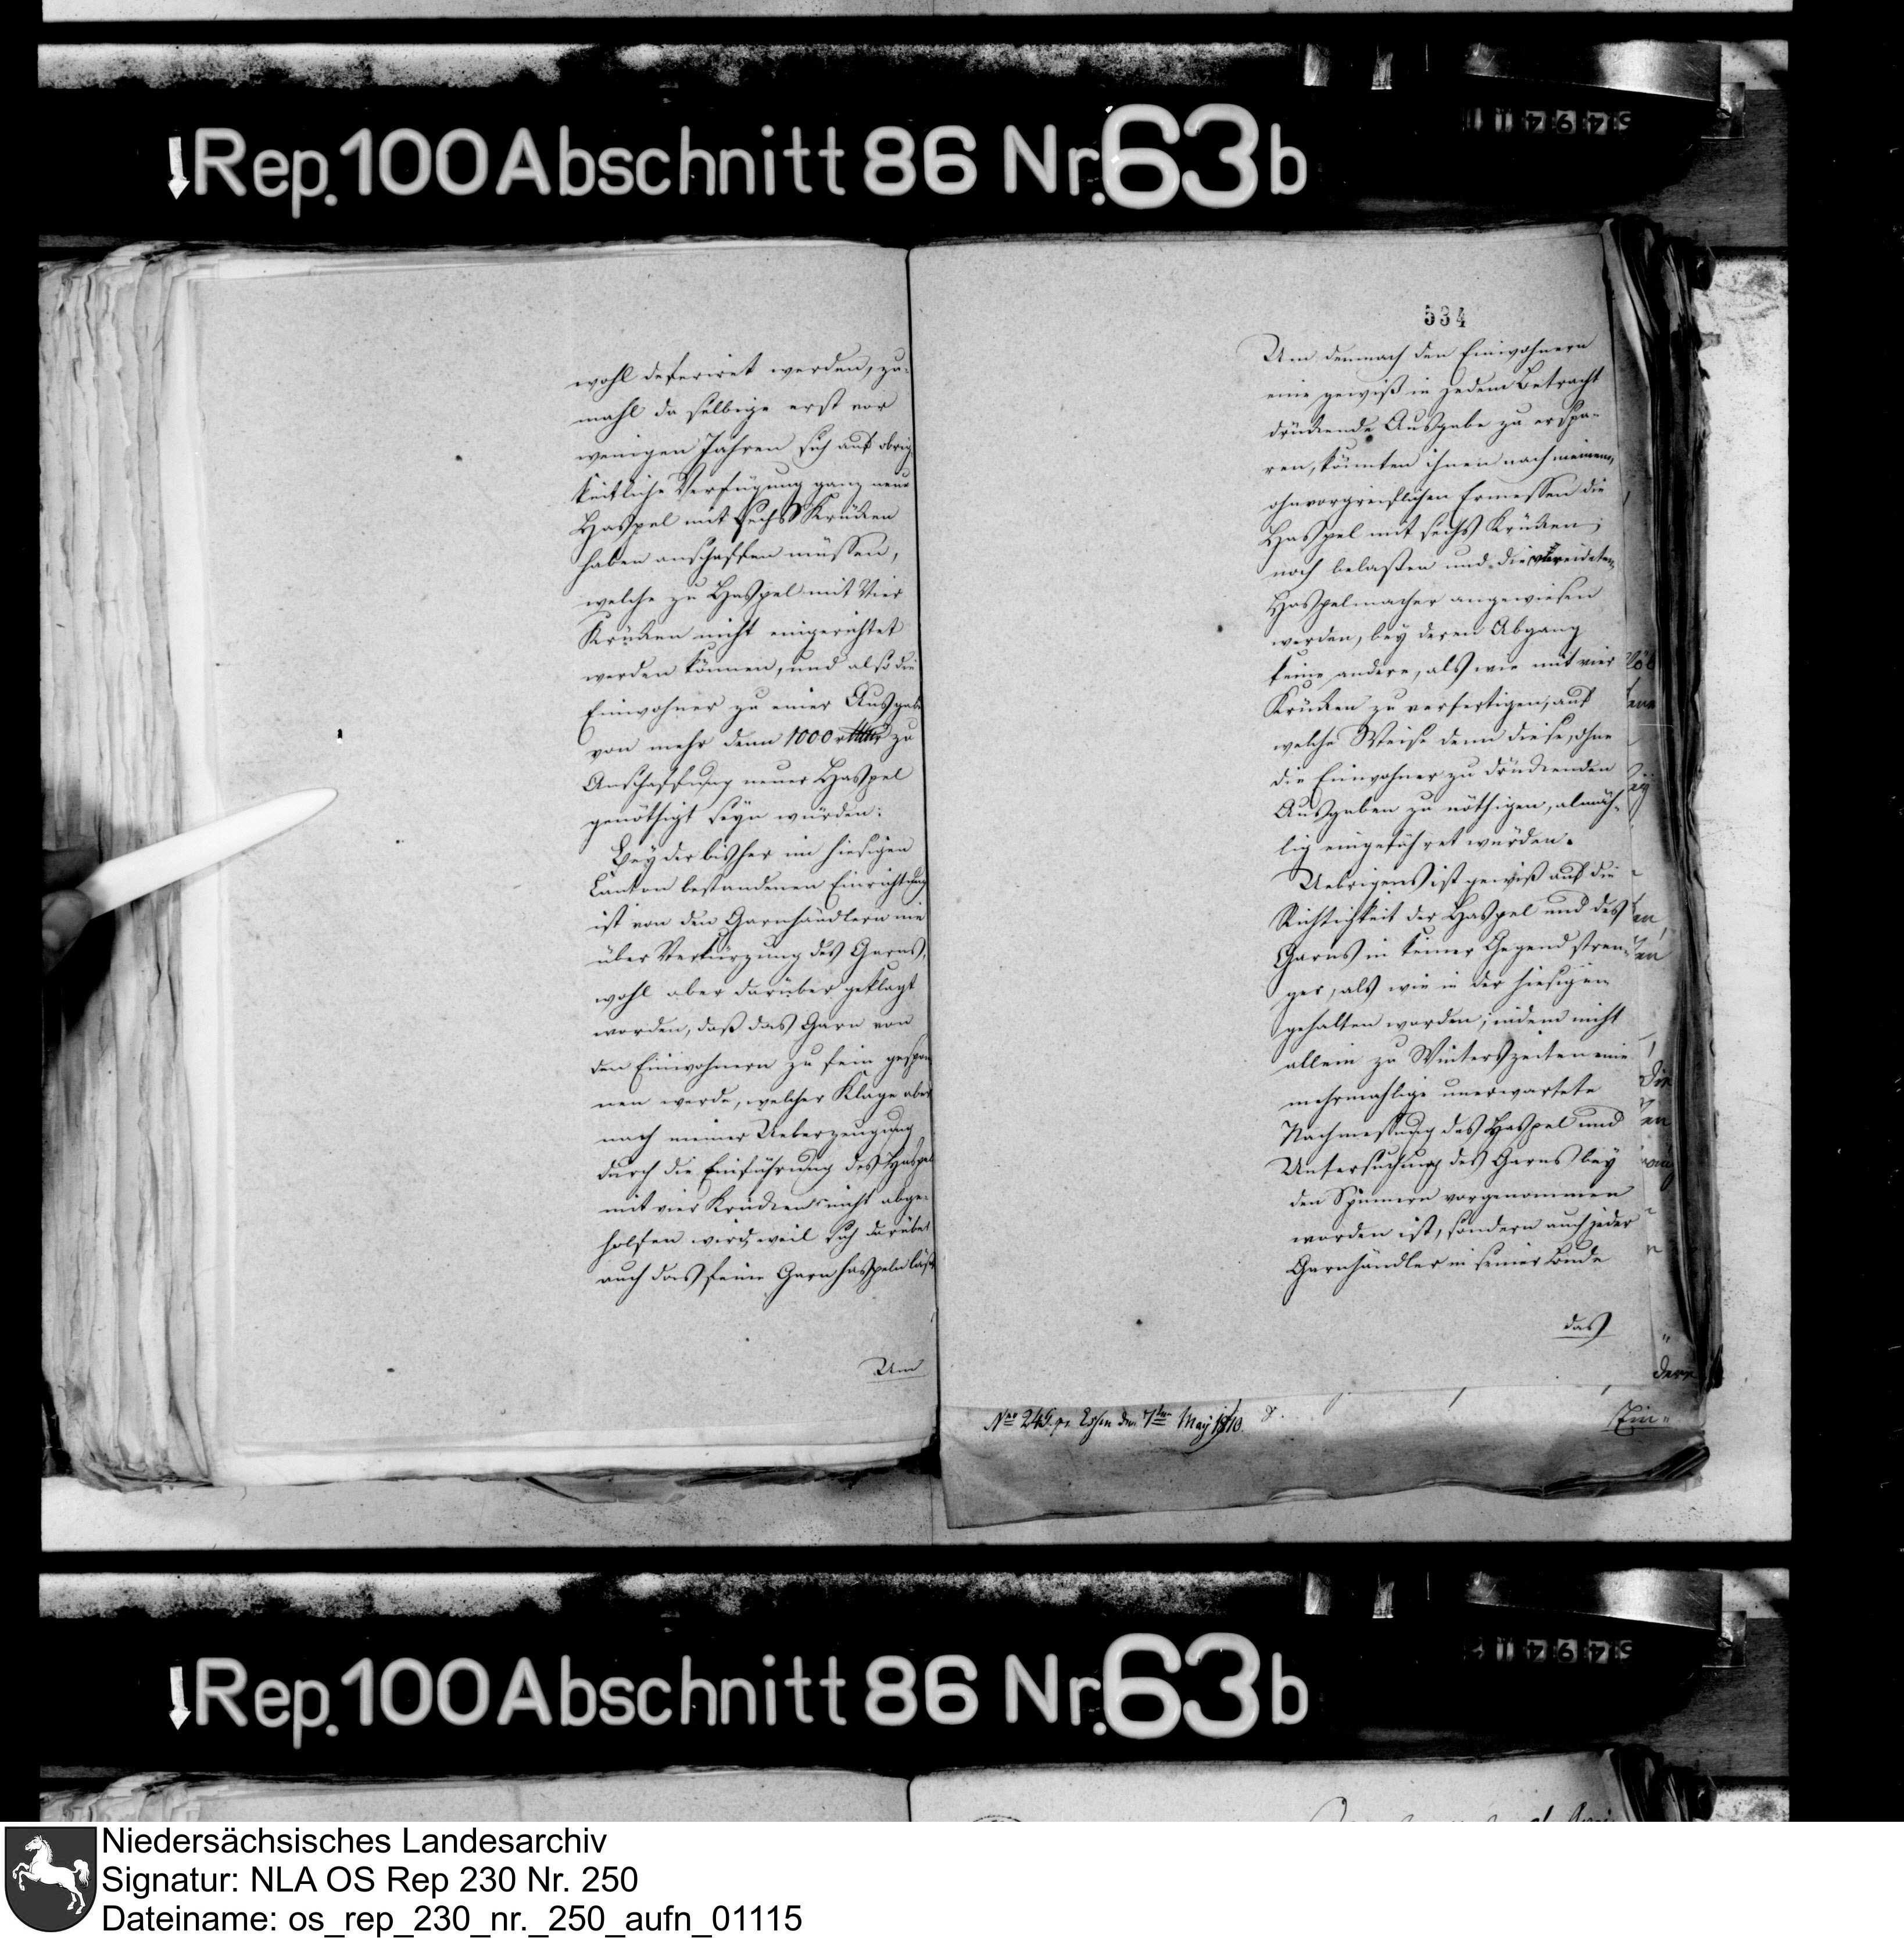 Rep. 100 Abschnitt 86 Nr. 63 b
wohl deferiret werden, zu-
mahl da selbige erst vor
wenigen Jahren sich auf obrig-
keitliche Verfügung ganz neue
Haspel mit sechs Krücken
haben anschaffen müssen,
welche zu Haspel mit Vier
Krücken nicht eingerichtet
werden können, und also die
Einwohner zu einer Ausgabe
von mehr denn 1000 zu
Anschaffung neuer Haspel
genöthigt seyn würden:
Bey der bisher im hiesigen
Canton bestandenen Einrichtung
ist von den Garnhändlern nie
über Verkürzung des Garns,
wohl aber darüber geklagt
worden, daß das Garn von
den Einwohnern zu fein gespon
nen werde, welcher Klage aber
nach meiner Ueberzeugung
durch die Einführung des Haspel
mit vier Krücken nicht abge-
holfen wird, weil sich darüber
auch das feine Garn haspeln läßt,
Um
534
Um demnach den Einwohnern
eine gewiß in jedem Betracht
drückende Ausgabe zu erspa-
ren, könnten ihnen nach meinem,
ohnvorgreiflichen Ermessen die
Haspel mit sechs Krücken,
noch belaßen und die vereideten
Haspelmacher angewiesen
werden, bey deren Abgang
keine andere, als wie mit vier
Krücken zu verfertigen, auf
welche Weise denn diese, ohne
die Einwohner zu drückenden
Ausgaben zu nöthigen, almäh-
lig eingeführet würden.
Uebrigens ist gewiß auf die
Richtigkeit der Haspel und des
Garns in keiner Gegend stren-
ger, als wie in der hiesigen
gehalten worden; indem nicht
allein zu Winterszeiten eine
mehrmahlige unerwartete
Nachmessung des Haspel und
Untersuchung des Garns bey
den Spinnern vorgenommen
worden ist, sondern auch jeder
Garnhändler in seiner Bude
das
Ein-
den 7ten May 1810
Rep. 100 Abschnitt 86 Nr. 63 b
Niedersächsisches Landesarchiv
Signatur: NLA OS Rep 230 Nr. 250
Dateiname: os_rep_230_nr._250_aufn_01115